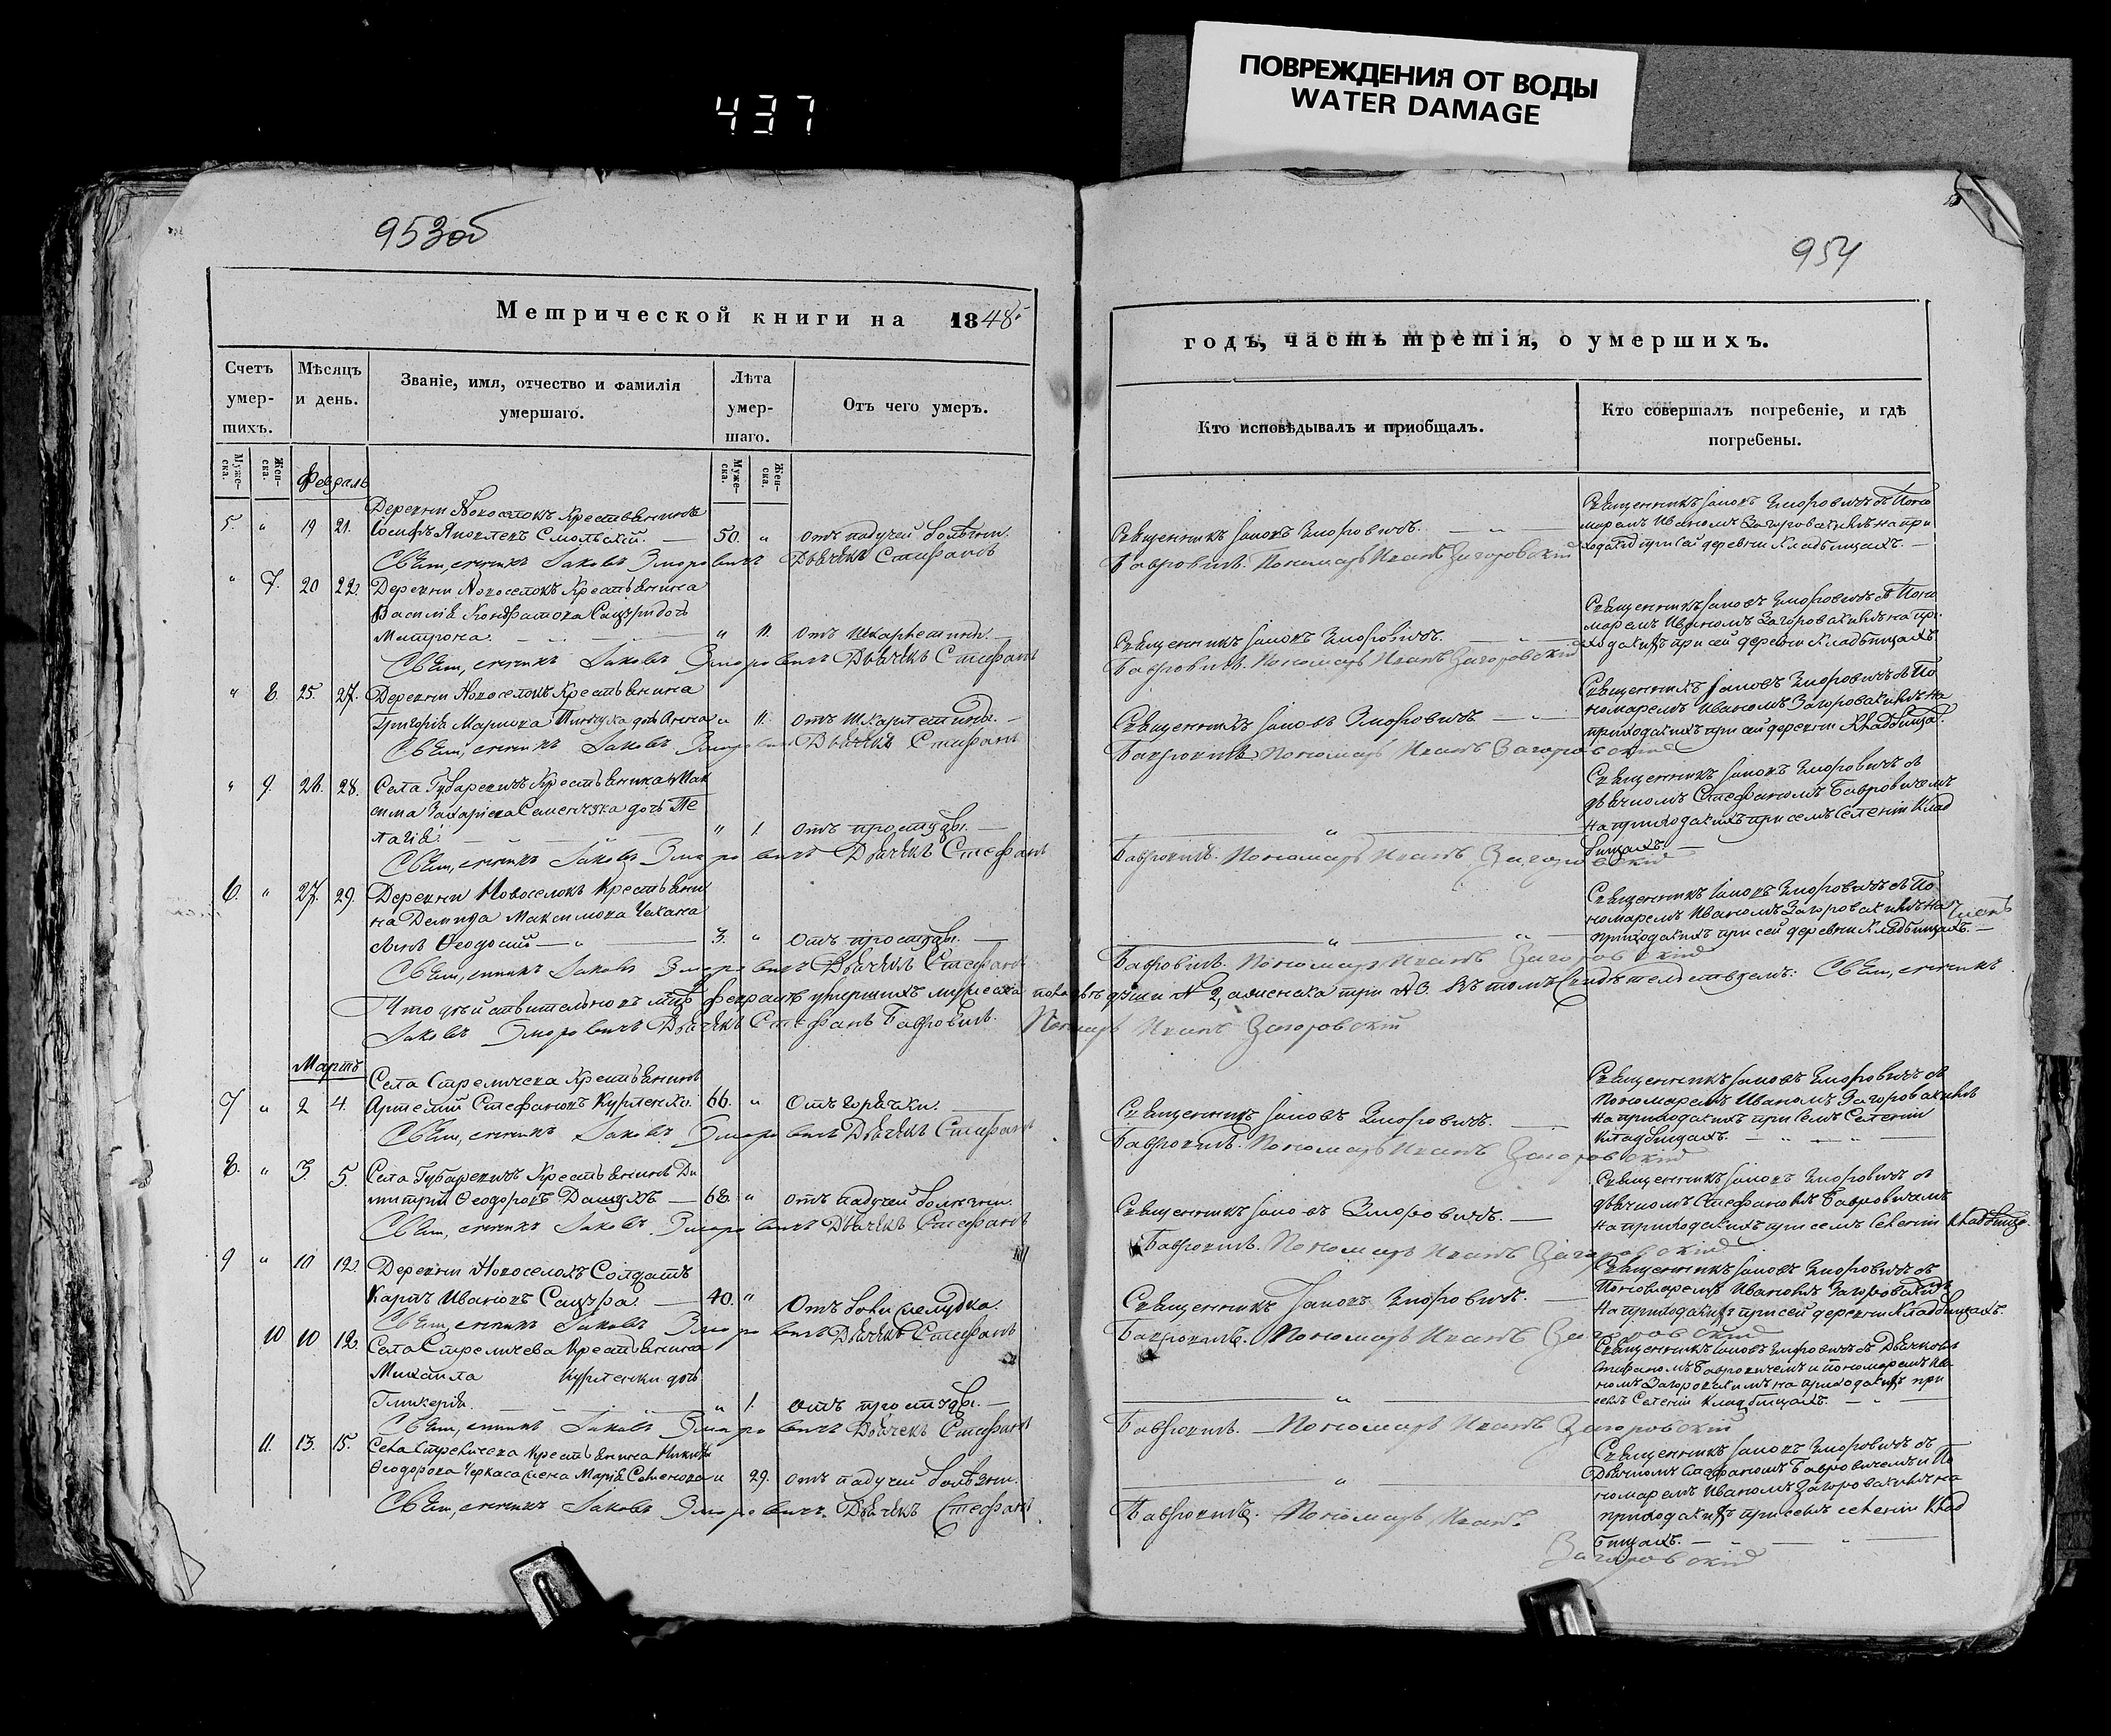 ПОВРЕЖДЕНИЯ ОТ ВОДЫ
WATER DAMAGE
437
953об
954
Метрической книги на 1848
годъ, часть третія, о умершихъ.
Счетъ умер-шихъ.
Мѣсяцъ и день.
Званіе, имя, отчество и фамилія умершаго.
Лѣта умер-шаго.
Отъ чего умеръ.
Кто исповѣдывалъ и приобщалъ.
Кто совершалъ погребеніе, и гдѣ погребены.
Муже-ска.
Жен-ска.
Муже-ска.
Жен-ска.
Февраль
Деревни Новоселокъ Крестьянинъ
5. " 19 21. Іосифъ Яковлевъ Смольскій. 50. " отъ падучей болѣзни. Священникъ Іаковъ Эморовичъ.
Священникъ Іаковъ Эморовичъ съ Поно
маремъ Иваномъ Загоровскимъ на при
ходскихъ при сей деревни Кладбищахъ.
Священникъ Іаковъ Эморовичъ Дьячекъ Стефанъ Бавровичъ. Пономарь Иванъ Загоровскій
" 7. 20 22. Деревни Новоселокъ Крестьянина
Василія Кондратова Сацуры дочь
Матрона. " 11. отъ шкарлетины. Священникъ Іаковъ Эморовичъ.
Священникъ Іаковъ Эморовичъ съ Поно
маремъ Иваномъ Загоровскимъ на при
ходскихъ при сей деревни Кладбищахъ
Священникъ Іаковъ Эморовичъ Дьячекъ Стефанъ Бавровичъ. Пономарь Иванъ Загоровскій
" 8. 25. 27. Деревни Новоселокъ Крестьянина
Григорія Маркова дочь Анна " 11. отъ шкарлетины. Священникъ Іаковъ Эморовичъ
Священникъ Іаковъ Эморовичъ съ По
номаремъ Иваномъ Загоровскимъ на
приходскихъ при сей деревни Кладбища.
Священникъ Іаковъ Эморовичъ Дьячекъ Стефанъ Бавровичъ Пономарь Иванъ Загоровскій
" 9. 26. 28. Села Губаревичъ Крестьянина Мак
сима Захаріева Семенчука дочь Пе
лагія " 1. отъ простуды.
Священникъ Іаковъ Эморовичъ съ
дьячкомъ Стефаномъ Бавровичемъ
на приходскихъ при семъ Селеніи Клад
бищахъ.
Священникъ Іаковъ Эморовичъ Дьячекъ Стефанъ Бавровичъ. Пономарь Иванъ Загоровскій
6. " 27. 29. Деревни Новоселокъ Крестьяни
на Демида Максимова Чехана
сынъ Ѳеодосій 3. " отъ простуды.
Священникъ Іаковъ Эморовичъ съ По
номаремъ Иваномъ Загоровскимъ на
приходскихъ при сей деревни Кладбищахъ.
Священникъ Іаковъ Эморовичъ Дьячекъ Стефанъ Бавровичъ. Пономарь Иванъ Загоровскій
Что дѣйствительно въ Февралѣ умершихъ мужеска пола двѣ души № 2, а женска три № 3. въ томъ свидѣтельствуемъ: Священникъ
Іаковъ Эморовичъ Дьячекъ Стефанъ Бавровичъ. Пономарь Иванъ Загоровскій
Мартъ
Села Стреличева Крестьянинъ
7 " 2 4. Артемій Стефановъ Курленко. 66. " Отъ горячки. Священникъ Іаковъ Эморовичъ.
Священникъ Іаковъ Эморовичъ съ
Пономаремъ Иваномъ Загоровскимъ
на приходскихъ при семъ Селеніи
Кладбищахъ.
Священникъ Іаковъ Эморовичъ Дьячекъ Стефанъ Бавровичъ. Пономарь Иванъ Загоровскій
8. " 3. 5. Села Губаревичъ Крестьянинъ Ди
митрій Ѳеодоровъ Дашукъ 68. " отъ падучей болѣзни. Священникъ Іаковъ Эморовичъ.
Священникъ Іаковъ Эморовичъ съ
дьячкомъ Стефаномъ Бавровичемъ
на приходскихъ при семъ Селеніи Кладбище.
Священникъ Іаковъ Эморовичъ Дьячекъ Стефанъ Бавровичъ. Пономарь Иванъ Загоровскій
9 " 10 12. Деревни Новоселокъ Солдатъ
Карпъ Ивановъ Сацура. 40. " Отъ боли желудка. Священникъ Іаковъ Эморовичъ.
Священникъ Іаковъ Эморовичъ съ
Пономаремъ Иваномъ Загоровскимъ
на приходскихъ при сей деревни Кладбищахъ.
Священникъ Іаковъ Эморовичъ Дьячекъ Стефанъ Бавровичъ. Пономарь Иванъ Загоровскій
10 10 12. Села Стреличева Крестьянина
Михаила Курленки дочь
Гликерія. " 1. отъ простуды.
Священникъ Іаковъ Эморовичъ съ Дьячкомъ
Стефаномъ Бавровичемъ и пономаремъ Ива
номъ Загоровскимъ на приходскихъ при
семъ Селеніи Кладбищахъ.
Священникъ Іаковъ Эморовичъ Дьячекъ Стефанъ Бавровичъ. Пономарь Иванъ Загоровскій
11. 13. 15. Села Стреличева Крестьянина Никиты
Ѳеодорова Черкаса жена Марія Семенова " 29. отъ падучей болѣзни.
Священникъ Іаковъ Эморовичъ съ
Дьячкомъ Стефаномъ Бавровичемъ и По
номаремъ Иваномъ Загоровскимъ на
приходскихъ при семъ селеніи Клад
бищахъ.
Священникъ Іаковъ Эморовичъ. Дьячекъ Стефанъ Бавровичъ. Пономарь Иванъ
Загоровскій